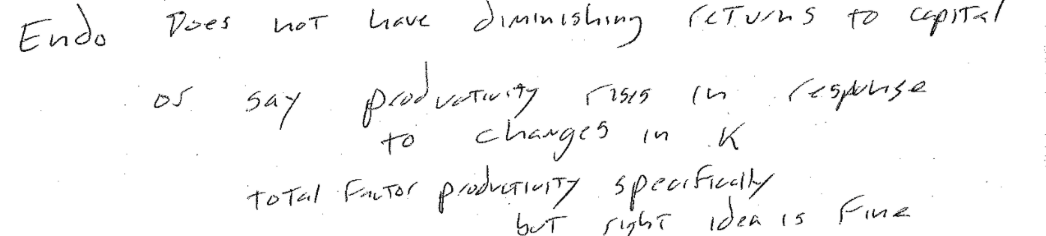 Endo Does not have diminishing returns to capital
or say productivity rises in response
to changes in K
total Factor productivity specifically
but right idea is Fine